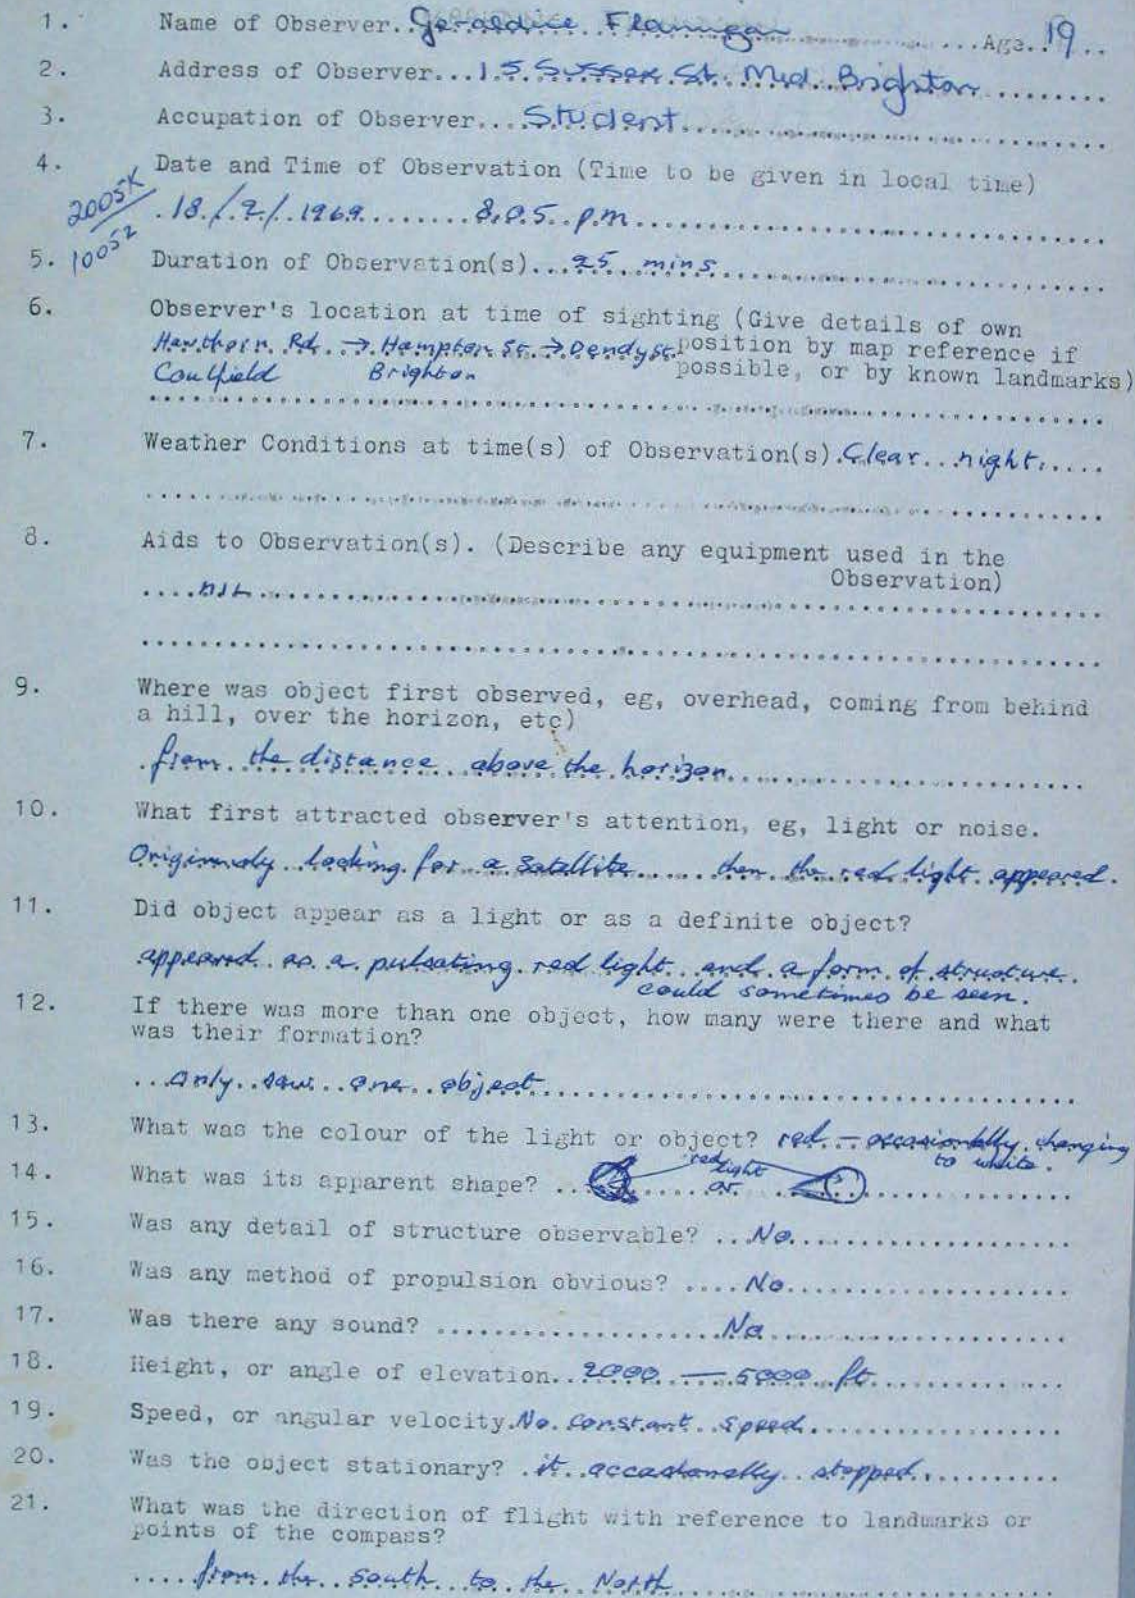 1. Name of Observer..Geraldine Flannigan...Age..19..
2. Address of Observer...15 Sussex St. Mid. Brighton........
3. Accupation of Observer....Student.....
4. Date and Time of Observation (Time to be given in local time)
2005K
.18./.7./.1969........8.05..p.m.....
1005Z
5. Duration of Observation(s)...25..mins.....
6. Observer's location at time of sighting (Give details of own
Hawthorn Rd. → Hampton St → Dendy St. position by map reference if
Caulfield Brighton possible, or by known landmarks)
7. Weather Conditions at time(s) of Observation(s).Clear...night.....
8. Aids to Observation(s). (Describe any equipment used in the
Observation)
....NIL.....
9. Where was object first observed, eg, overhead, coming from behind
a hill, over the horizon, etc)
.from the distance above the horizon.....
10. What first attracted observer's attention, eg, light or noise.
Originaly looking for a satellite..... then the red light appeared.
11. Did object appear as a light or as a definite object?
appeared as a pulsating red light and a form of structure
could sometimes be seen.
12. If there was more than one object, how many were there and what
was their formation?
...only..saw..one..object.....
13. What was the colour of the light or object? red - occasionally changing
to white.
14. What was its apparent shape? ... red light or ...
15. Was any detail of structure observable? ...No.....
16. Was any method of propulsion obvious? ....No.....
17. Was there any sound? .....No.....
18. Height, or angle of elevation..2000 — 5000 ft.....
19. Speed, or angular velocity.No constant speed.....
20. Was the object stationary? .it..occasionally..stopped.....
21. What was the direction of flight with reference to landmarks or
points of the compass?
....from the south to the North.....